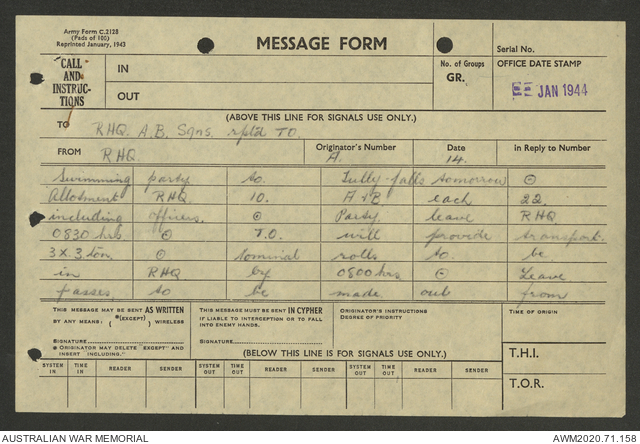 Army Form C.2128
(Pads of 100)
Reprinted January, 1943
MESSAGE FORM
Serial No.
"CALL AND INSTRUC-TIONS
IN
OUT
No. of Groups
GR.
OFFICE DATE STAMP
JAN 1944
(ABOVE THIS LINE FOR SIGNALS USE ONLY.)
TO RHQ. A.B. Sqns. rptd TO.
FROM RHQ. Originator's Number A. Date 14. In Reply to Number
Swimming party to. Tully falls tomorrow ⊙
Allotment RHQ 10. A+B each 22.
including officers. ⊙ Party leave RHQ
0830 hrs ⊙ T.O. will provide transport.
3 x 3 ton. ⊙ Nominal rolls to be
in RHQ by 0800 hrs ⊙ Leave
passes to be made out from
THIS MESSAGE MAY BE SENT AS WRITTEN
BY ANY MEANS. (*(EXCEPT)) WIRELESS
SIGNATURE
* ORIGINATOR MAY DELETE "EXCEPT" AND INSERT INCLUDING."
THIS MESSAGE MUST BE SENT IN CYPHER
IF LIABLE TO INTERCEPTION OR TO FALL INTO ENEMY HANDS.
SIGNATURE
ORIGINATOR'S INSTRUCTIONS
DEGREE OF PRIORITY
TIME OF ORIGIN
(BELOW THIS LINE IS FOR SIGNALS USE ONLY.)
T.H.I.
T.O.R.
SYSTEM IN TIME IN READER SENDER SYSTEM OUT TIME OUT READER SENDER SYSTEM OUT TIME OUT READER SENDER
AUSTRALIAN WAR MEMORIAL
AWM2020.71.158